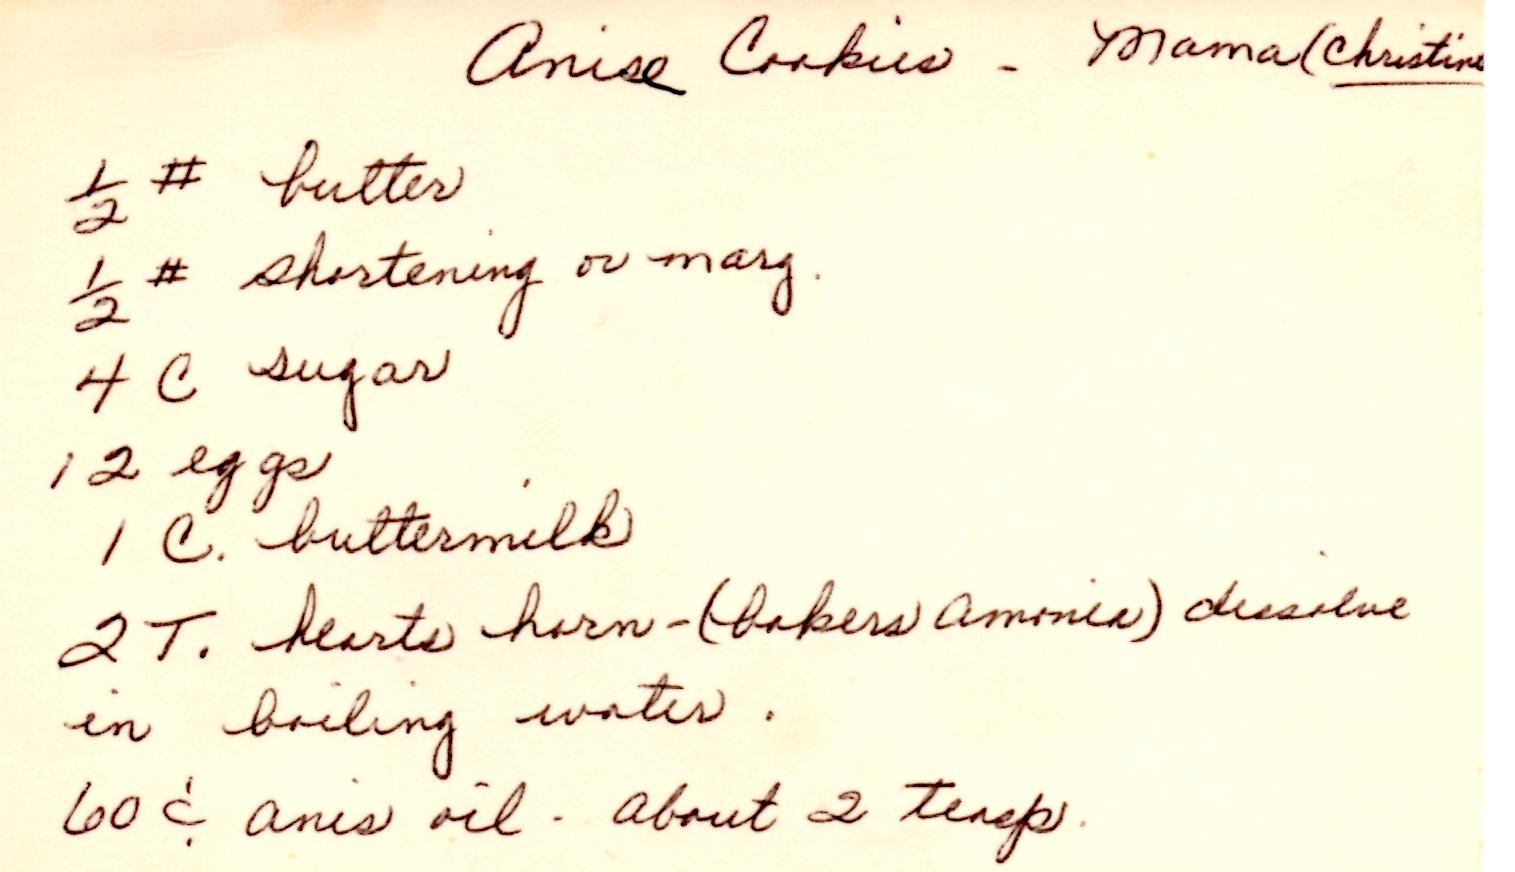 Anise Cookies - Mama (Christine
1/2 # butter
1/2 # shortening or marg.
4 C sugar
12 eggs
1 C. buttermilk
2 T. hearts horn - (bakers amonia) dissolve
in boiling water.
60 ¢ anis oil - about 2 teasp.